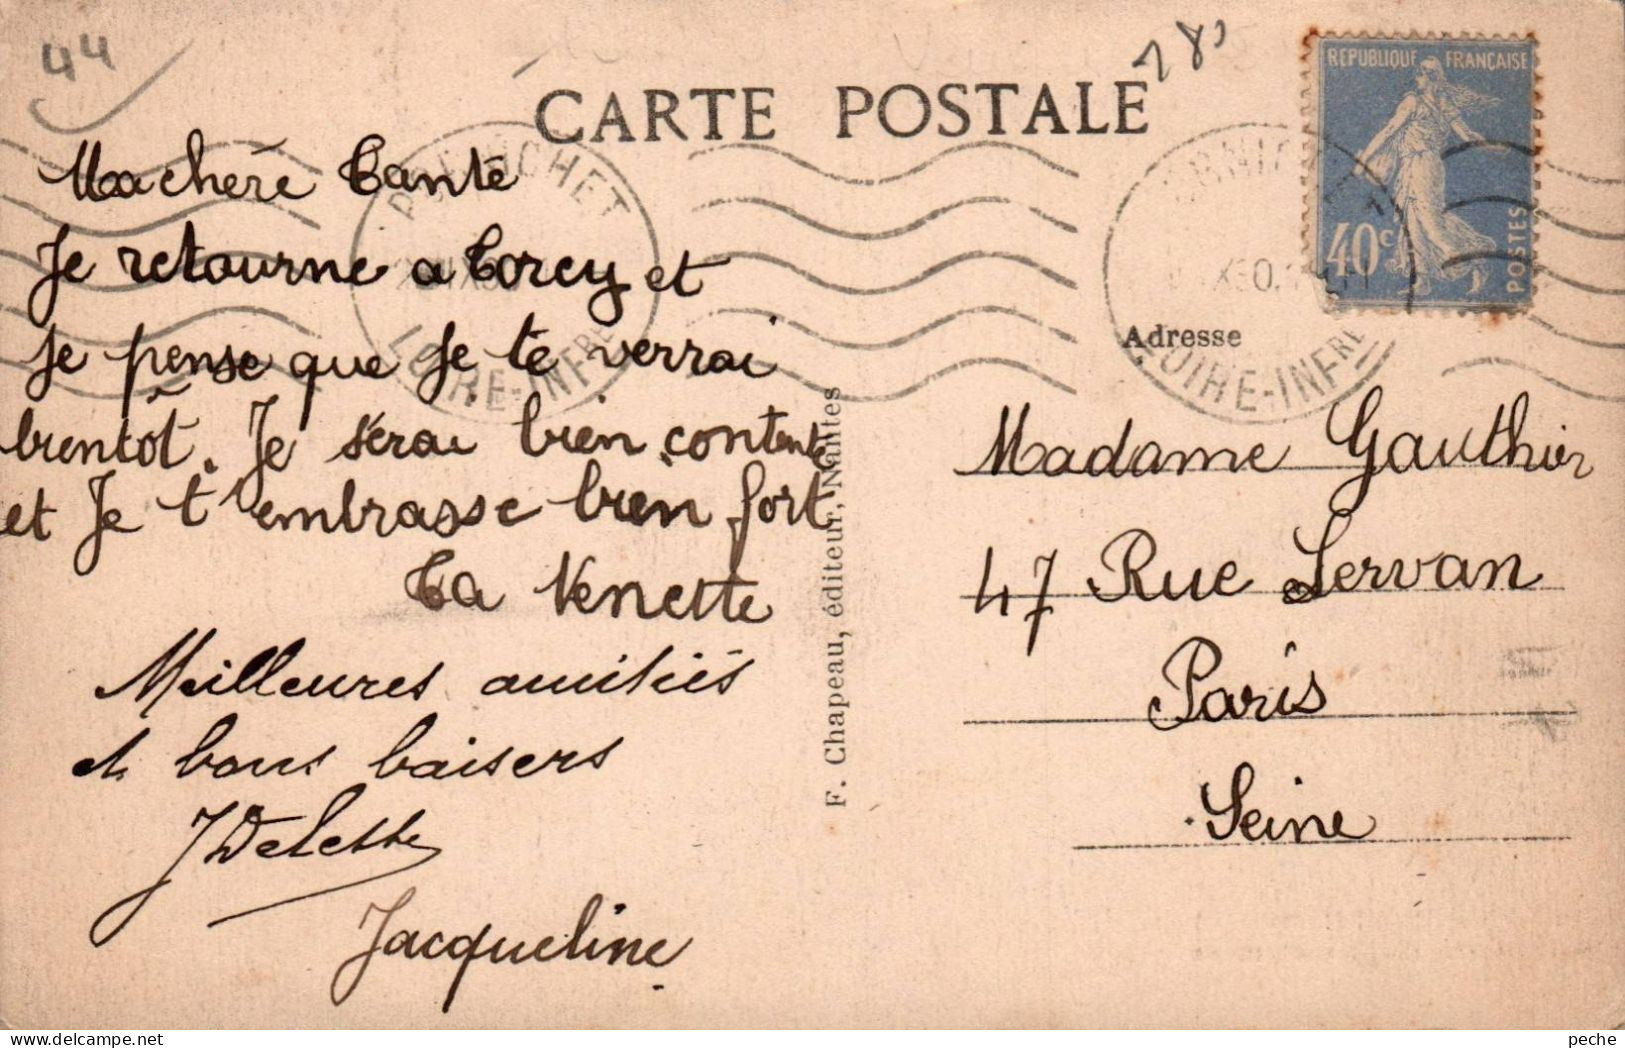 44
CARTE POSTALE
RÉPUBLIQUE FRANÇAISE
40c
POSTES
LOIRE-INFRE
LOIRE-INFRE
Ma chère Tante
Je retourne a Torcy et
je pense que je te verrai
bientôt. Je serai bien contente
et Je t'embrasse bien fort
Ta Nenette
Meilleures amitiés
et bons baisers
Jacqueline
F. Chapeau, éditeur, Nantes
Adresse
Madame Gauthier
47 Rue Servan
Paris
Seine
peche